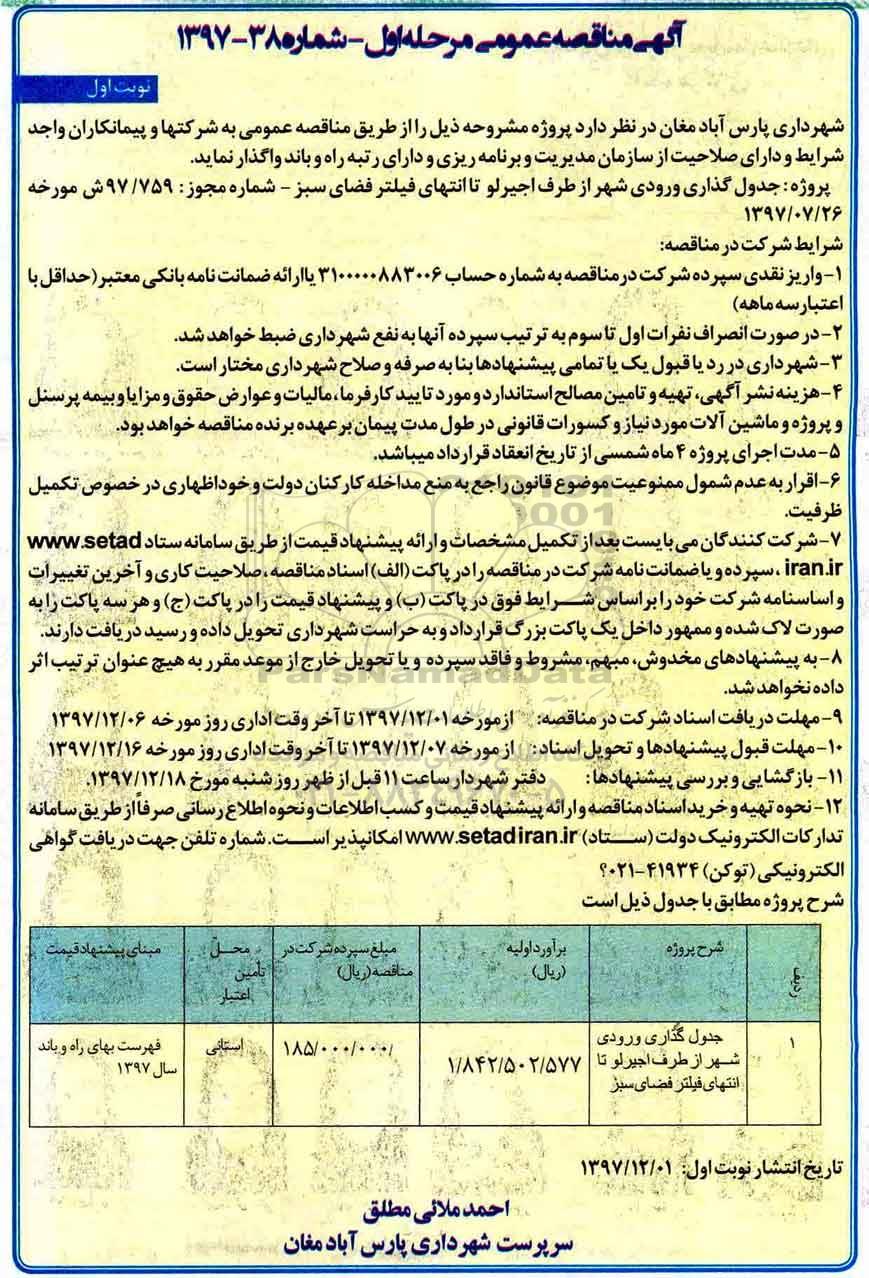 آگهی مناقصه عمومی مرحله اول - شماره ۳۸-۱۳۹۷
نوبت اول
شهرداری پارس آباد مغان در نظر دارد پروژه مشروحه ذیل را از طریق مناقصه عمومی به شرکتها و پیمانکاران واجد
شرایط و دارای صلاحیت از سازمان مدیریت و برنامه ریزی و دارای رتبه راه و باند واگذار نماید.
پروژه : جدول گذاری ورودی شهر از طرف اجیرلو تا انتهای فیلتر فضای سبز - شماره مجوز : ۹۷/۷۵۹ ش مورخه
۱۳۹۷/۰۷/۲۶
شرایط شرکت در مناقصه:
۱-واریز نقدی سپرده شرکت در مناقصه به شماره حساب ۳۱۰۰۰۰۰۸۸۳۰۰۶ یا ارائه ضمانت نامه بانکی معتبر (حداقل با
اعتبار سه ماهه)
۲-در صورت انصراف نفرات اول تا سوم به ترتیب سپرده آنها به نفع شهرداری ضبط خواهد شد.
۳-شهرداری در رد یا قبول یک یا تمامی پیشنهادها بنا به صرفه و صلاح شهرداری مختار است.
۴-هزینه نشر آگهی، تهیه و تامین مصالح استاندارد و مورد تایید کارفرما، مالیات و عوارض حقوق و مزایا و بیمه پرسنل
و پروژه و ماشین آلات مورد نیاز و کسورات قانونی در طول مدت پیمان بر عهده برنده مناقصه خواهد بود.
۵-مدت اجرای پروژه ۴ ماه شمسی از تاریخ انعقاد قرارداد میباشد.
۶-اقرار به عدم شمول ممنوعیت موضوع قانون راجع به منع مداخله کارکنان دولت و خوداظهاری در خصوص تکمیل
ظرفیت.
۷-شرکت کنندگان می بایست بعد از تکمیل مشخصات و ارائه پیشنهاد قیمت از طریق سامانه ستاد www.setad
iran.ir ، سپرده و یا ضمانت نامه شرکت در مناقصه را در پاکت (الف) اسناد مناقصه ، صلاحیت کاری و آخرین تغییرات
و اساسنامه شرکت خود را بر اساس شرایط فوق در پاکت (ب) و پیشنهاد قیمت را در پاکت (ج) و هر سه پاکت را به
صورت لاک شده و ممهور داخل یک پاکت بزرگ قرارداد و به حراست شهرداری تحویل داده و رسید دریافت دارند.
۸-به پیشنهادهای مخدوش، مبهم، مشروط و فاقد سپرده و یا تحویل خارج از موعد مقرر به هیچ عنوان ترتیب اثر
داده نخواهد شد.
۹-مهلت دریافت اسناد شرکت در مناقصه: از مورخه ۱۳۹۷/۱۲/۰۱ تا آخر وقت اداری روز مورخه ۱۳۹۷/۱۲/۰۶
۱۰-مهلت قبول پیشنهادها و تحویل اسناد : از مورخه ۱۳۹۷/۱۲/۰۷ تا آخر وقت اداری روز مورخه ۱۳۹۷/۱۲/۱۶
۱۱- بازگشایی و بررسی پیشنهادها : دفتر شهردار ساعت ۱۱ قبل از ظهر روز شنبه مورخ ۱۳۹۷/۱۲/۱۸.
۱۲-نحوه تهیه و خرید اسناد مناقصه و ارائه پیشنهاد قیمت و کسب اطلاعات و نحوه اطلاع رسانی صرفاً از طریق سامانه
تدارکات الکترونیک دولت (ستاد) www.setadiran.ir امکانپذیر است. شماره تلفن جهت دریافت گواهی
الکترونیکی (توکن) ۴۱۹۳۴-۰۲۱؟
شرح پروژه مطابق با جدول ذیل است
ردیف
شرح پروژه
برآورد اولیه (ریال)
مبلغ سپرده شرکت در مناقصه (ریال)
محل تأمین اعتبار
مبنای پیشنهاد قیمت
۱
جدول گذاری ورودی
شهر از طرف اجیرلو تا
انتهای فیلتر فضای سبز
۱/۸۴۲/۵۰۲/۵۷۷
۱۸۵/۰۰۰/۰۰۰/
استانی
فهرست بهای راه و باند
سال ۱۳۹۷
تاریخ انتشار نوبت اول: ۱۳۹۷/۱۲/۰۱
احمد ملائی مطلق
سرپرست شهرداری پارس آباد مغان
ParsNamadData